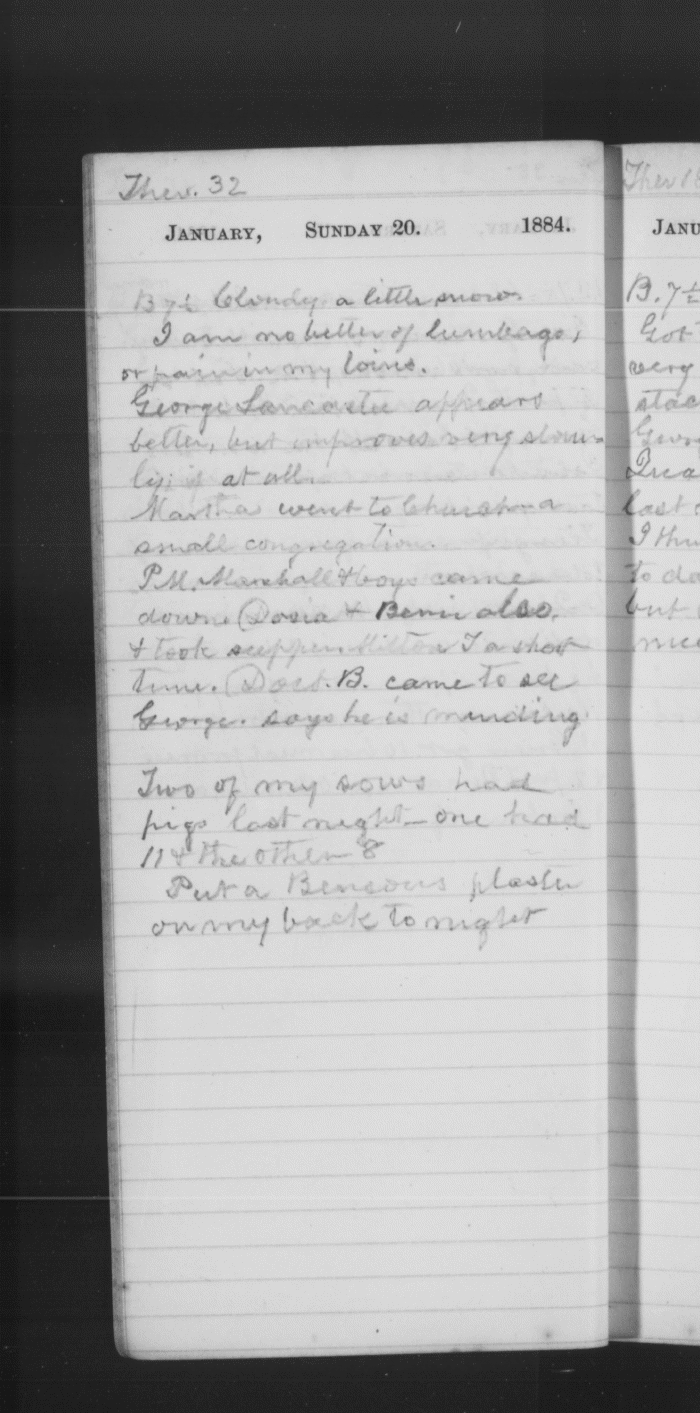 Ther. 32
JANUARY, SUNDAY 20. 1884.
B 7½ Cloudy a little snow
I am no better of lumbago,
or pain in my loins.
George Lancaster appears
better, but improves very slow-
ly; if at all.
Martha went to Church a
small congregation.
P.M. Marshall & boys came
down Dosia & also.
& took supper. Milton I a short
time. Doct. B. came to see
George. says he is mending
Two of my sows had
pigs last night—one had
11 & the other 8
Put a Bensons plaster
on my back to night
Ther
JANU
B. 7½
Got
very
stac
Geor
last
I thu
to da
but